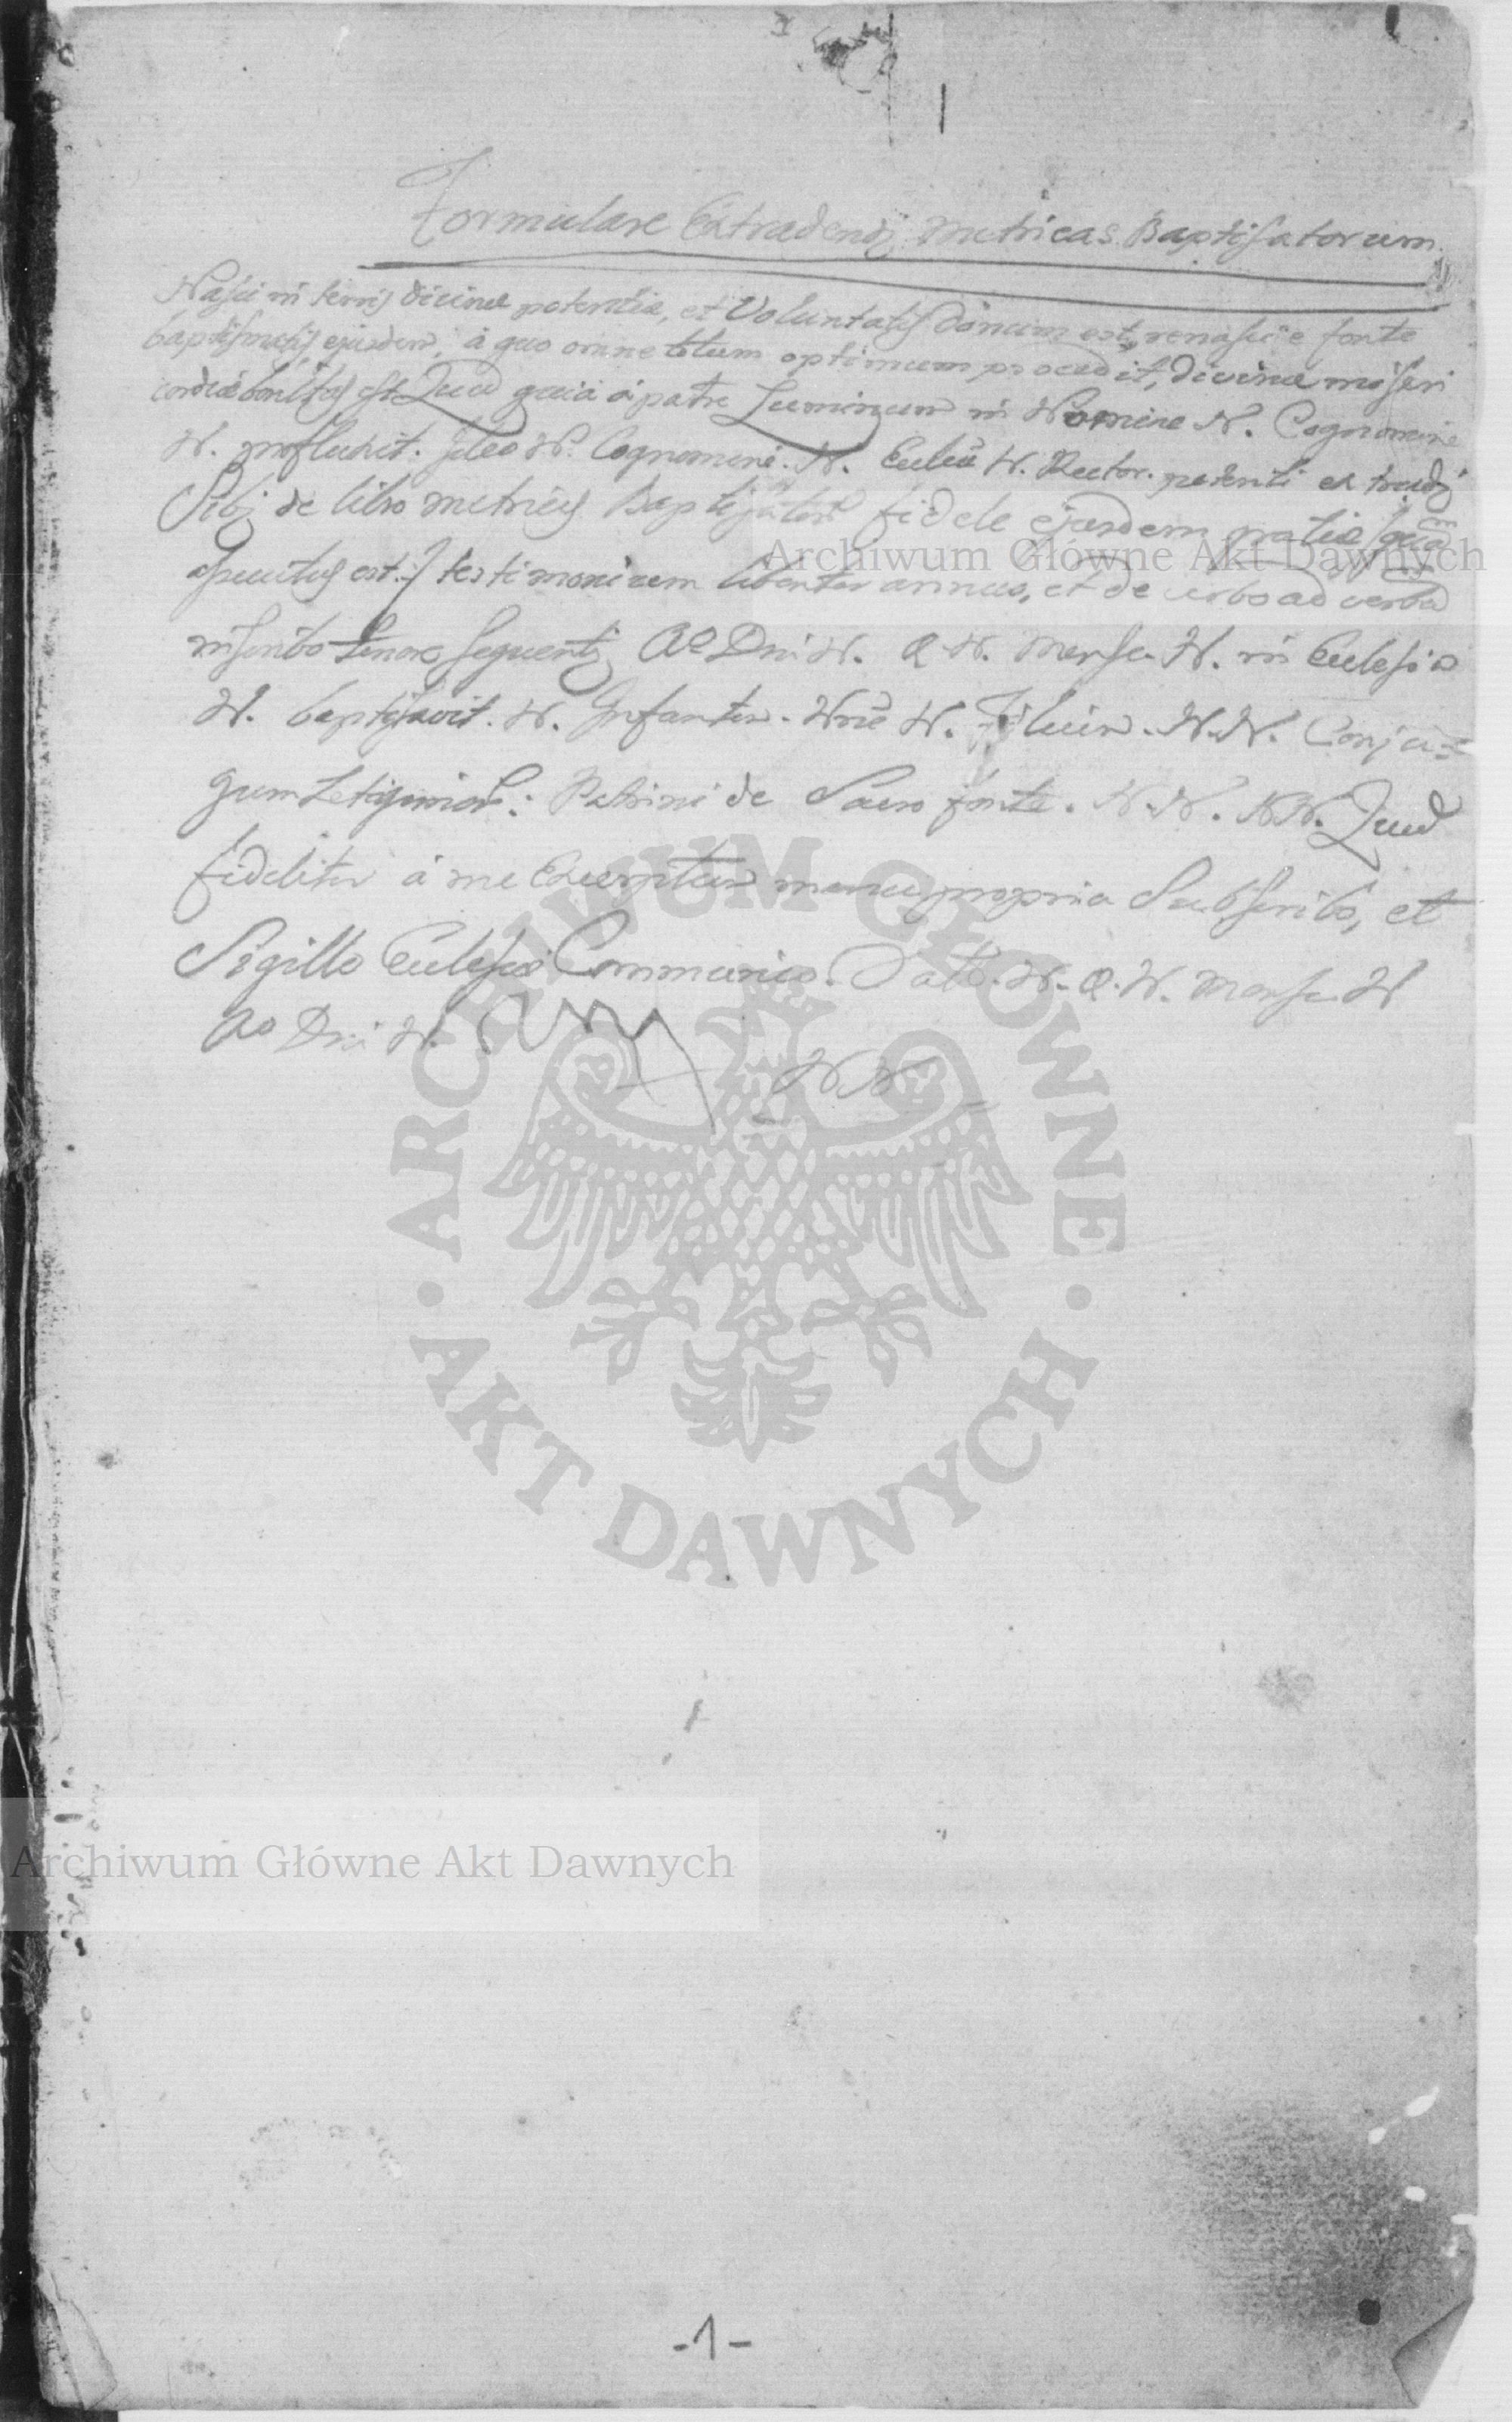 Formulare Extradendi Metricas Baptisatorum.
Nasci in terris divinae potentiae, et Voluntatis donum est, renasci e fonte
baptismatis ejusdem, à quo omne datum optimum procedit, divinae miseri
cordiae est Quod quia à patre Luminum in Nomine N. Cognomine
N. profluxit. Ideo N. Cognomine. N. Eccliae N. Rector. petenti extradi
Sibi de libro metrices Baptisator fidele ejusdem gratiae
est testimonium libenter annuo, et de verbo ad verbum
inscribo tenore sequenti Ao Dni N. D. N. Mense N. in Ecclesia
N. baptisavit. N. Infantem. Nne N. Filium. N.N. Conju=
gum Legitimor: Patrini de Sacro fonte. N.N. N.N. Quod
fideliter à me Excerptum manu propria Subscribo, et
Sigillo Ecclesiae Communico. Datt. N. D. N. Mense N
Ao Dni N.
N N
Archiwum Główne Akt Dawnych
ARCHIWUM GŁÓWNE
AKT DAWNYCH
Archiwum Główne Akt Dawnych
-1-